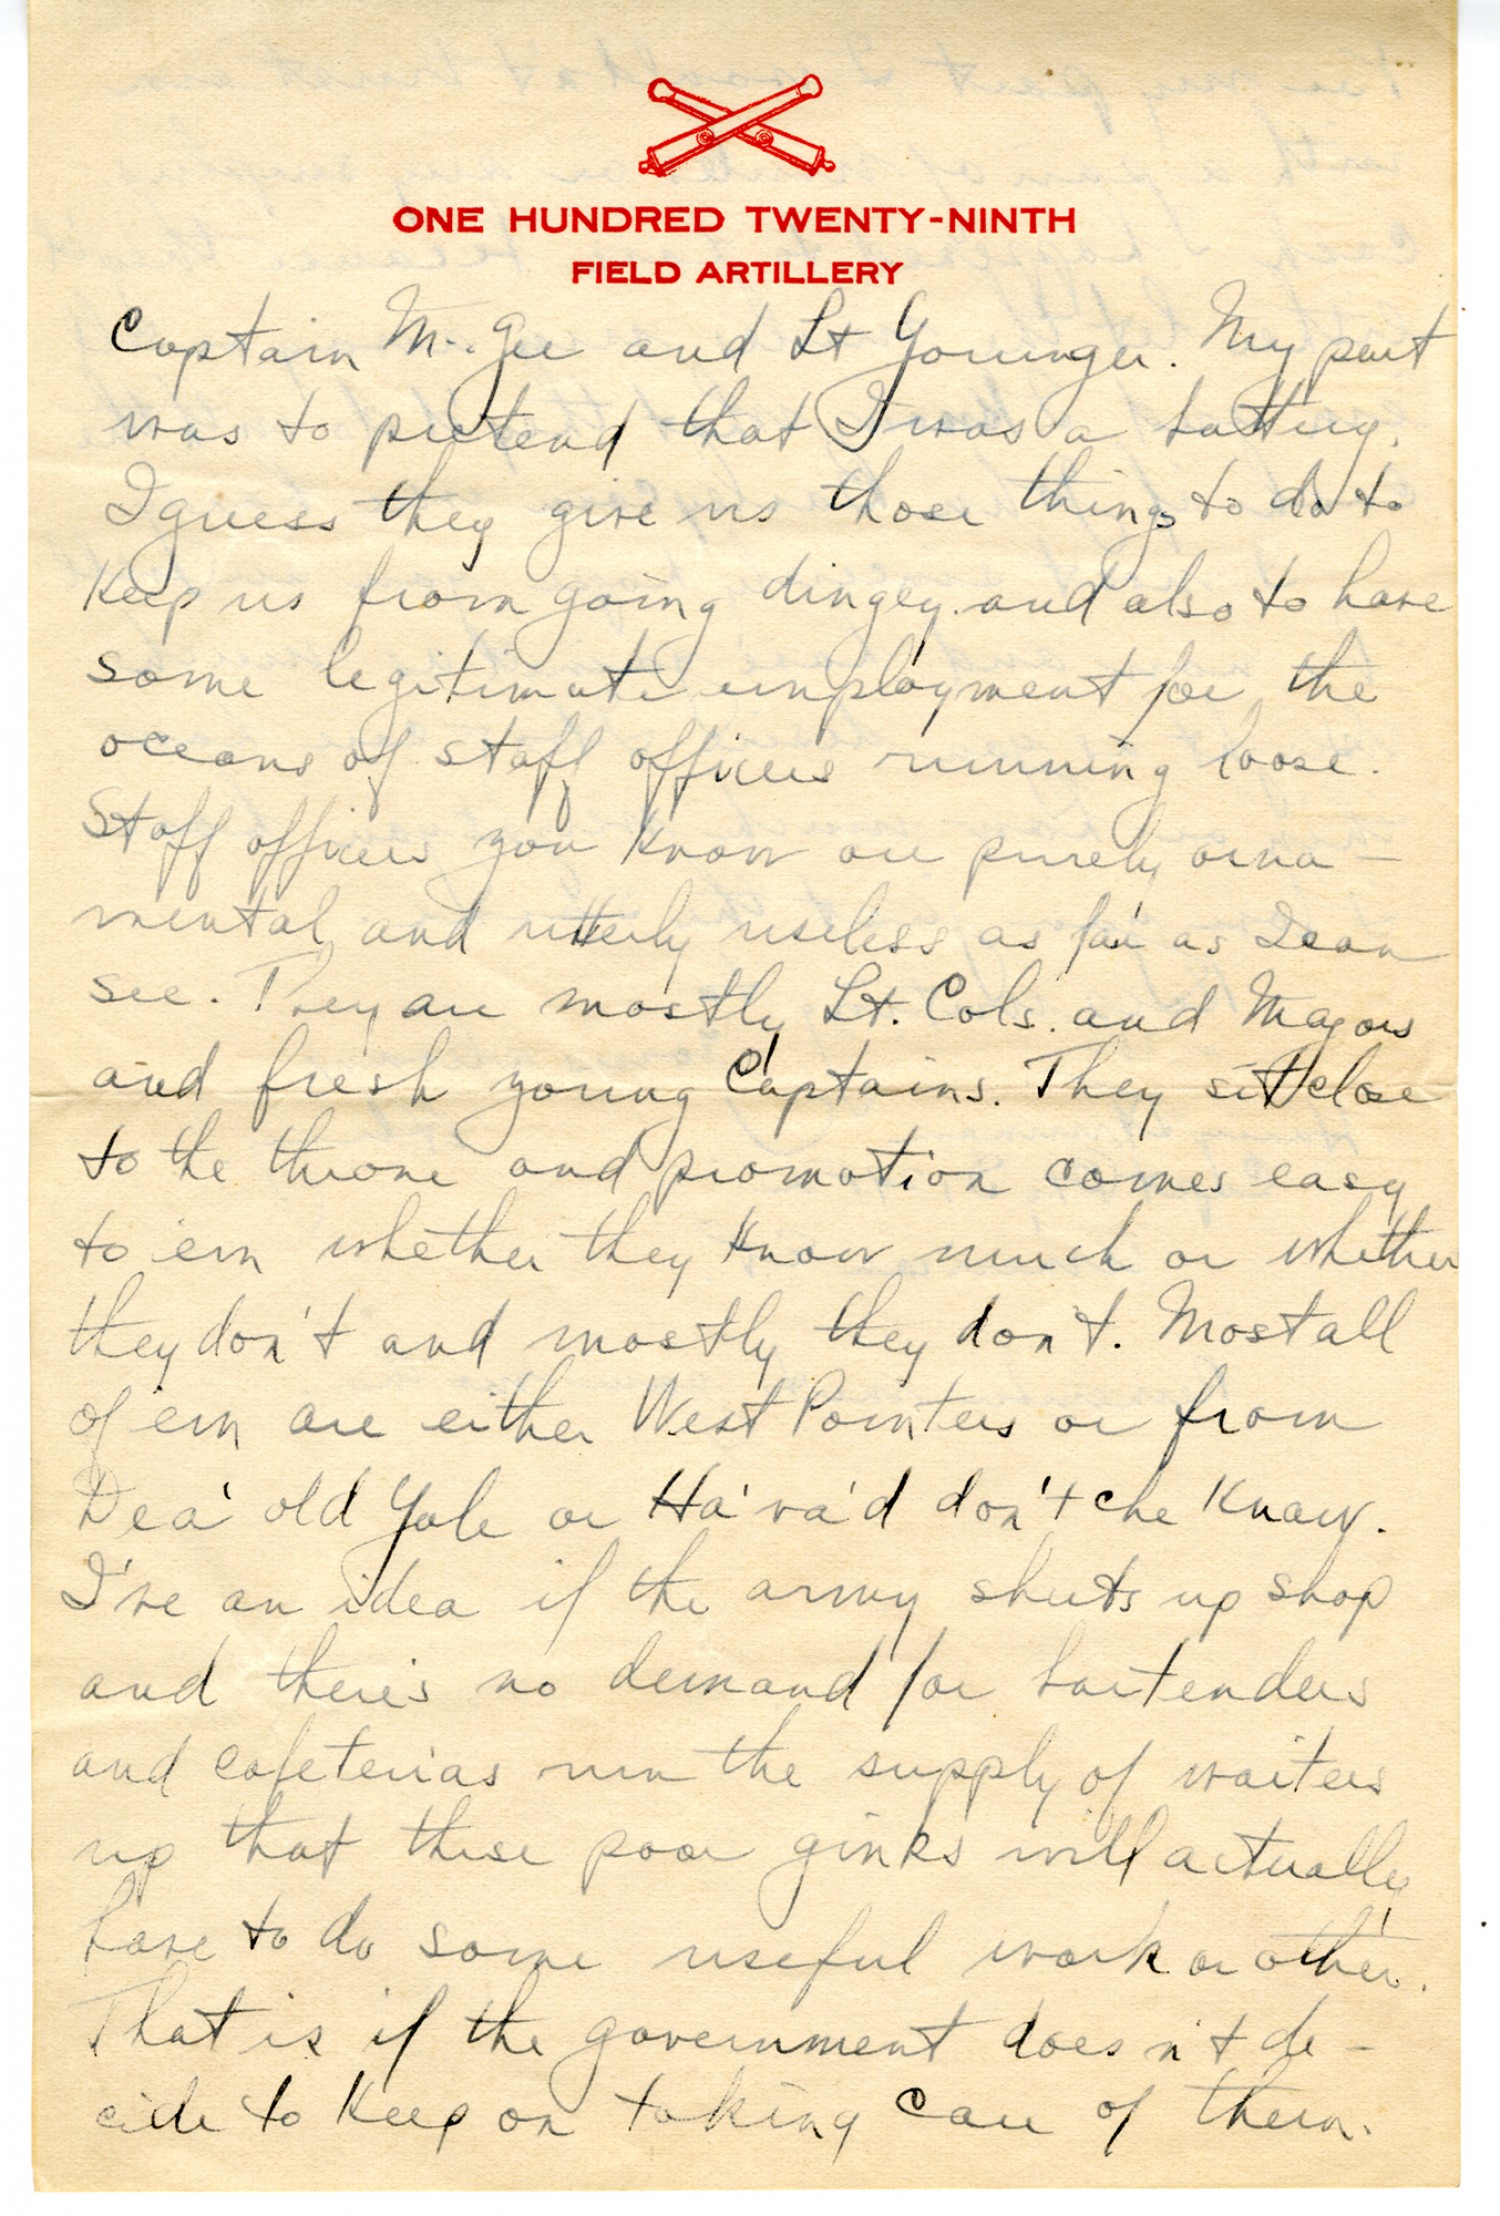 ONE HUNDRED TWENTY-NINTH
FIELD ARTILLERY
Captain McGee and Lt Younger. My part
was to pretend that I was a battery.
I guess they give us those things to do to
keep us from going dingey and also to have
some legitimate employment for the
oceans of staff officers running loose.
Staff officers you know are purely orna-
mental and utterly useless as far as I can
see. They are mostly Lt. Cols. and Majors
and fresh young Captains. They sit close
to the throne and promotion comes easy
to em whether they know much or whether
they don't and mostly they don't. Most all
of em are either West Pointers or from
Dea' old Yale or Ha'va'd don't che know.
I've an idea if the army shuts up shop
and there's no demand for bartenders
and cafeterias run the supply of waiters
up that these poor ginks will actually
have to do some useful work or other.
That is if the government doesn't de-
cide to keep on taking care of them.